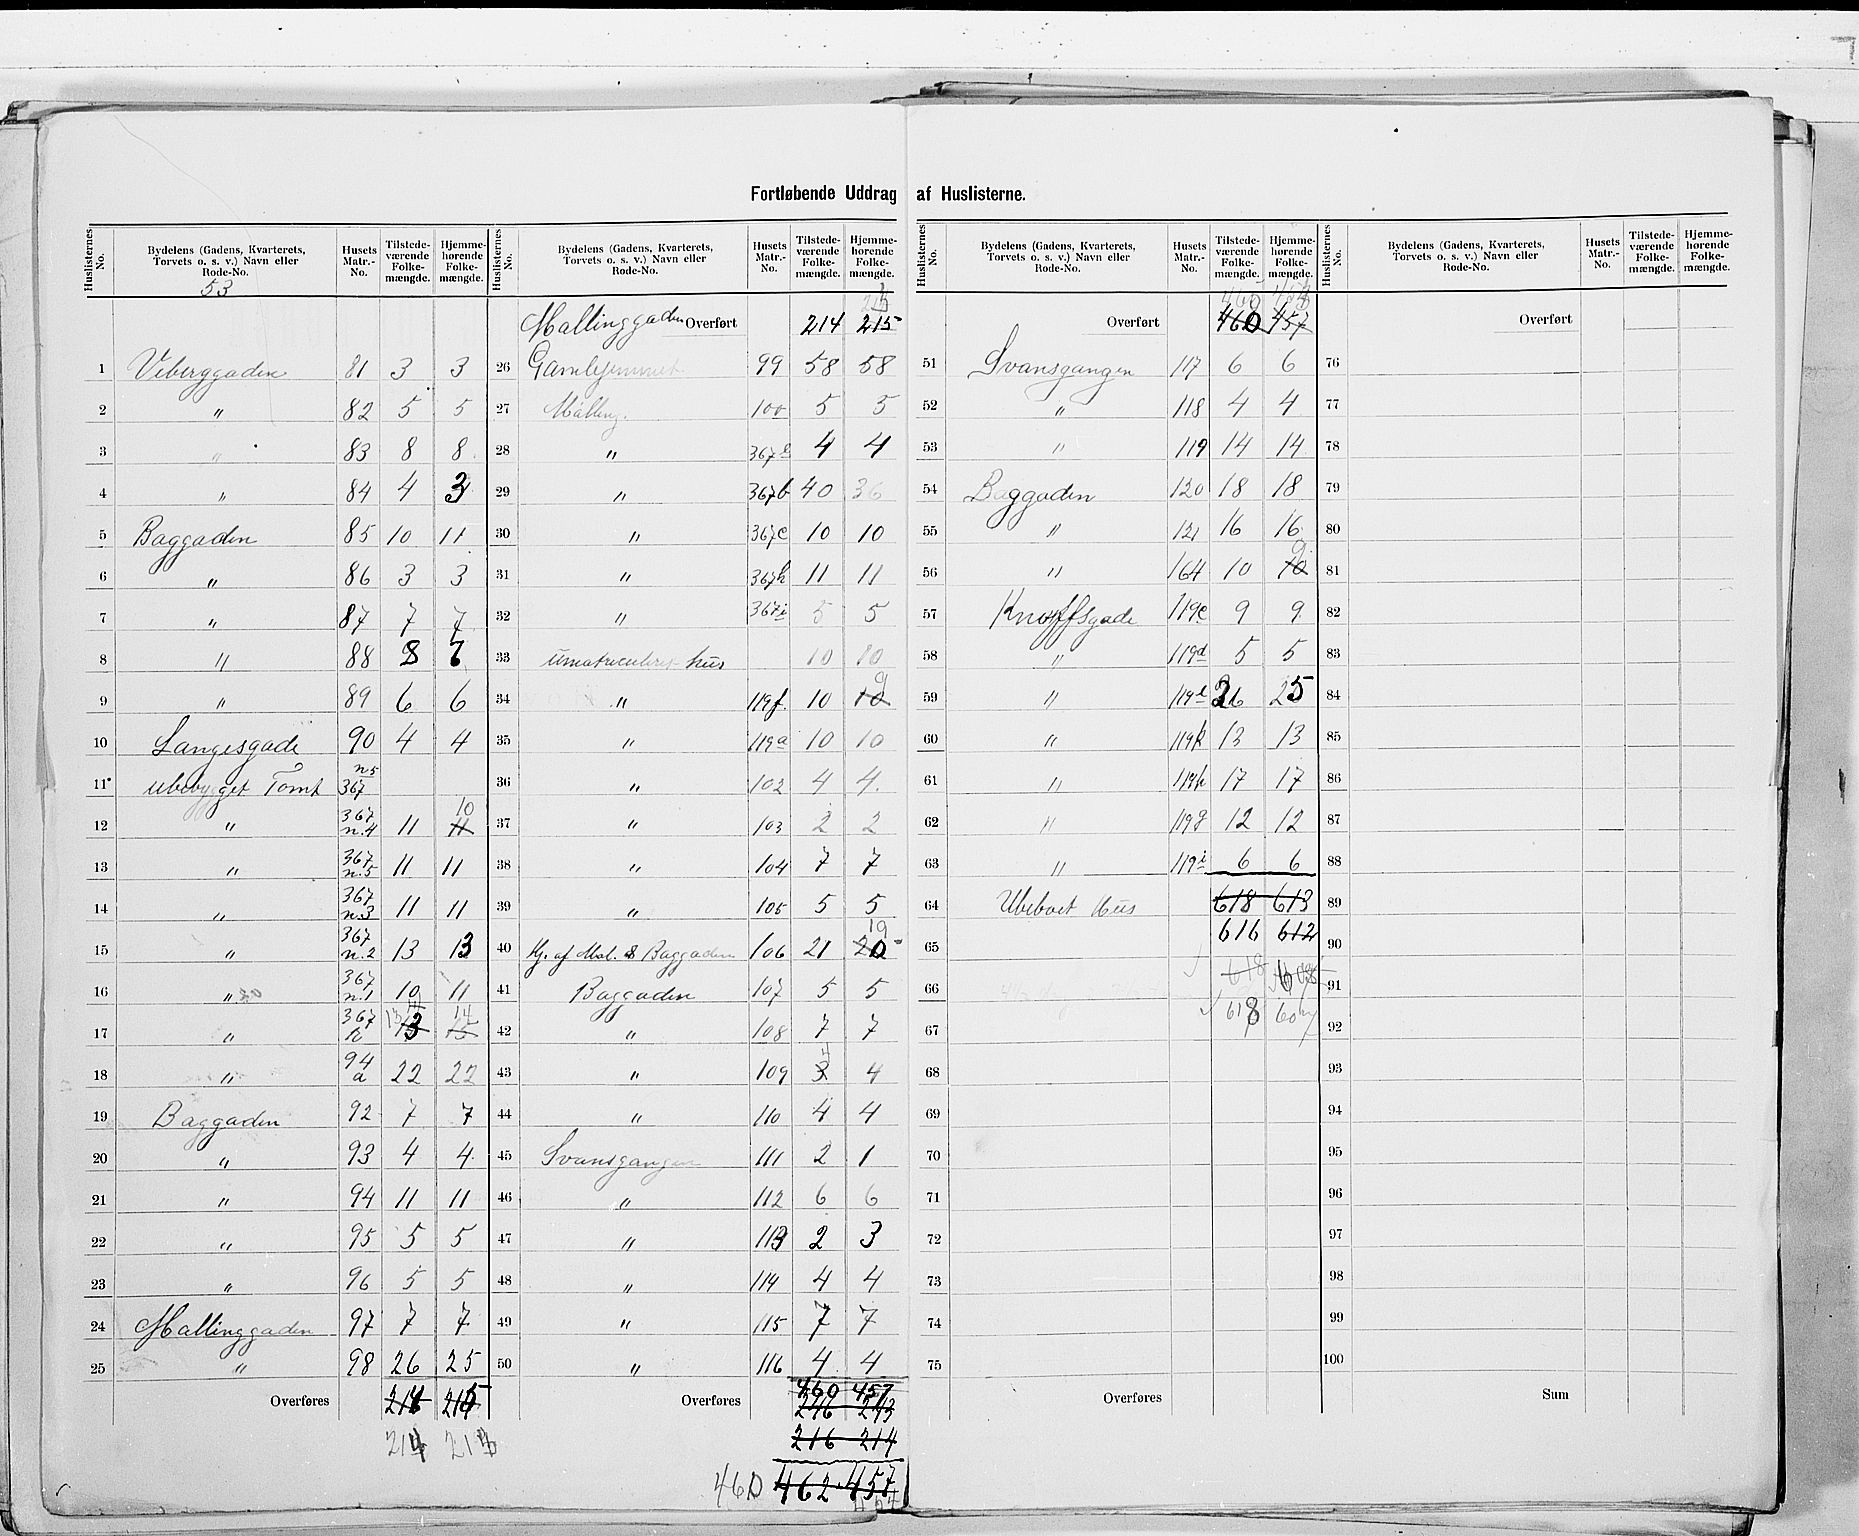 Fortløbende Uddrag af Huslisterne.
Huslisternes No. | Bydelens (Gadens, Kvarterets, Torvets o. s. v.) Navn eller Rode-No. | Husets Matr.-No. | Tilstedeværende Folkemængde. | Hjemmehørende Folkemængde.
53
1 Viberggaden 81 3 3
2 " 82 5 5
3 " 83 8 8
4 " 84 4 3
5 Baggaden 85 10 11
6 " 86 3 3
7 " 87 7 7
8 " 88 8 7
9 " 89 6 6
10 Langesgade 90 4 4
11 Ubebygget Tomt 367 n5
12 " 367 n.4 11 11 10
13 " 367 n.5 11 11
14 " 367 n.3 11 11
15 " 367 n.2 13 13
16 " 367 n.1 10 11
17 " 367 13 14
18 " 94 a 22 22
19 Baggaden 92 7 7
20 " 93 4 4
21 " 94 11 11
22 " 95 5 5
23 " 96 5 5
24 Mallinggaden 97 7 7
25 " 98 26 25
Overføres
214
Huslisternes No. | Bydelens (Gadens, Kvarterets, Torvets o. s. v.) Navn eller Rode-No. | Husets Matr.-No. | Tilstedeværende Folkemængde. | Hjemmehørende Folkemængde.
Mallinggaden Overført 214 215
26 Gamlehjemmet 99 58 58
27 Malling. 100 5 5
28 " 367 4 4
29 " 367b 40 36
30 " 367c 10 10
31 " 367h 11 11
32 " 367i 5 5
33 Umatriculeret hus 10 10
34 " 119f. 10 10 9
35 " 119a 10 10
36 " 102 4 4
37 " 103 2 2
38 " 104 7 7
39 " 105 5 5
40 Hj. af Mal. & Baggaden 106 21 20 19
41 Baggaden 107 5 5
42 " 108 7 7
43 " 109 3 4 4
44 " 110 4 4
45 Svansgangen 111 2 1
46 " 112 6 6
47 " 113 2 3
48 " 114 4 4
49 " 115 7 7
50 " 116 4 4
Overføres 460 457
246 243
216 214
460 462 457
Huslisternes No. | Bydelens (Gadens, Kvarterets, Torvets o. s. v.) Navn eller Rode-No. | Husets Matr.-No. | Tilstedeværende Folkemængde. | Hjemmehørende Folkemængde.
Overført 460 457
51 Svansgangen 117 6 6
52 " 118 4 4
53 " 119 14 14
54 Baggaden 120 18 18
55 " 121 16 16
56 " 164 10 10 9
57 Knoffsgade 119c 9 9
58 " 119d 5 5
59 " 26 25
60 " 119k 13 13
61 " 17 17
62 " 119g 12 12
63 " 119i 6 6
64 Ubeboet Hus 618 613
65 616 612
66 618 608
67 618 607
68
69
70
71
72
73
74
75
Overføres
Huslisternes No. | Bydelens (Gadens, Kvarterets, Torvets o. s. v.) Navn eller Rode-No. | Husets Matr.-No. | Tilstedeværende Folkemængde. | Hjemmehørende Folkemængde.
Overført
76
77
78
79
80
81
82
83
84
85
86
87
88
89
90
91
92
93
94
95
96
97
98
99
100
Sum